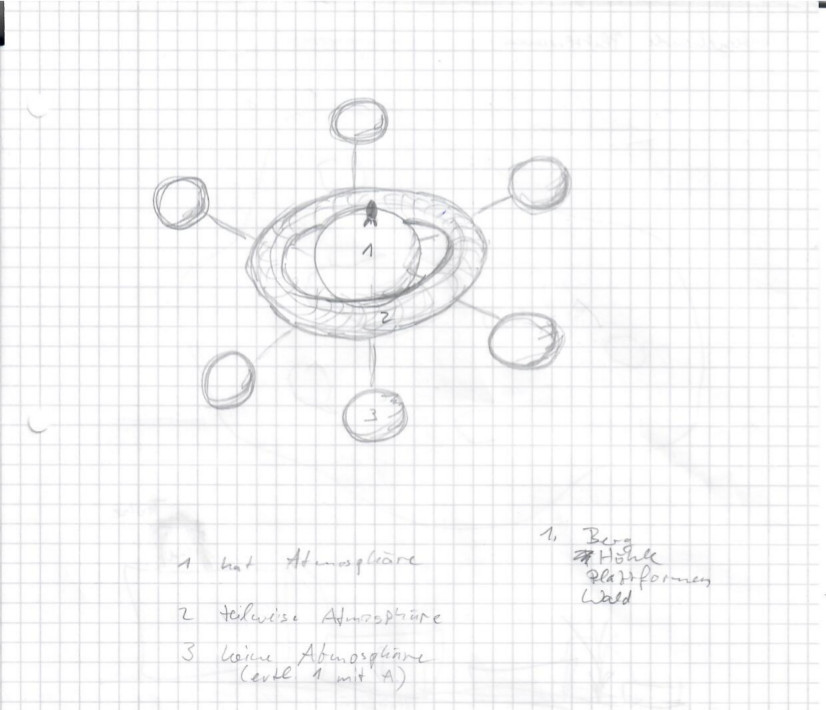 1
2
3
1 hat Atmosphäre
2 teilweise Atmosphäre
3 keine Atmosphäre
(evtl 1 mit A)
1. Berg
Höhle
Plattformen
Wald